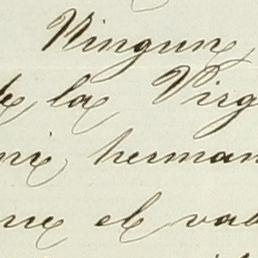 Ningun
de la Virg
mi herman
me el val